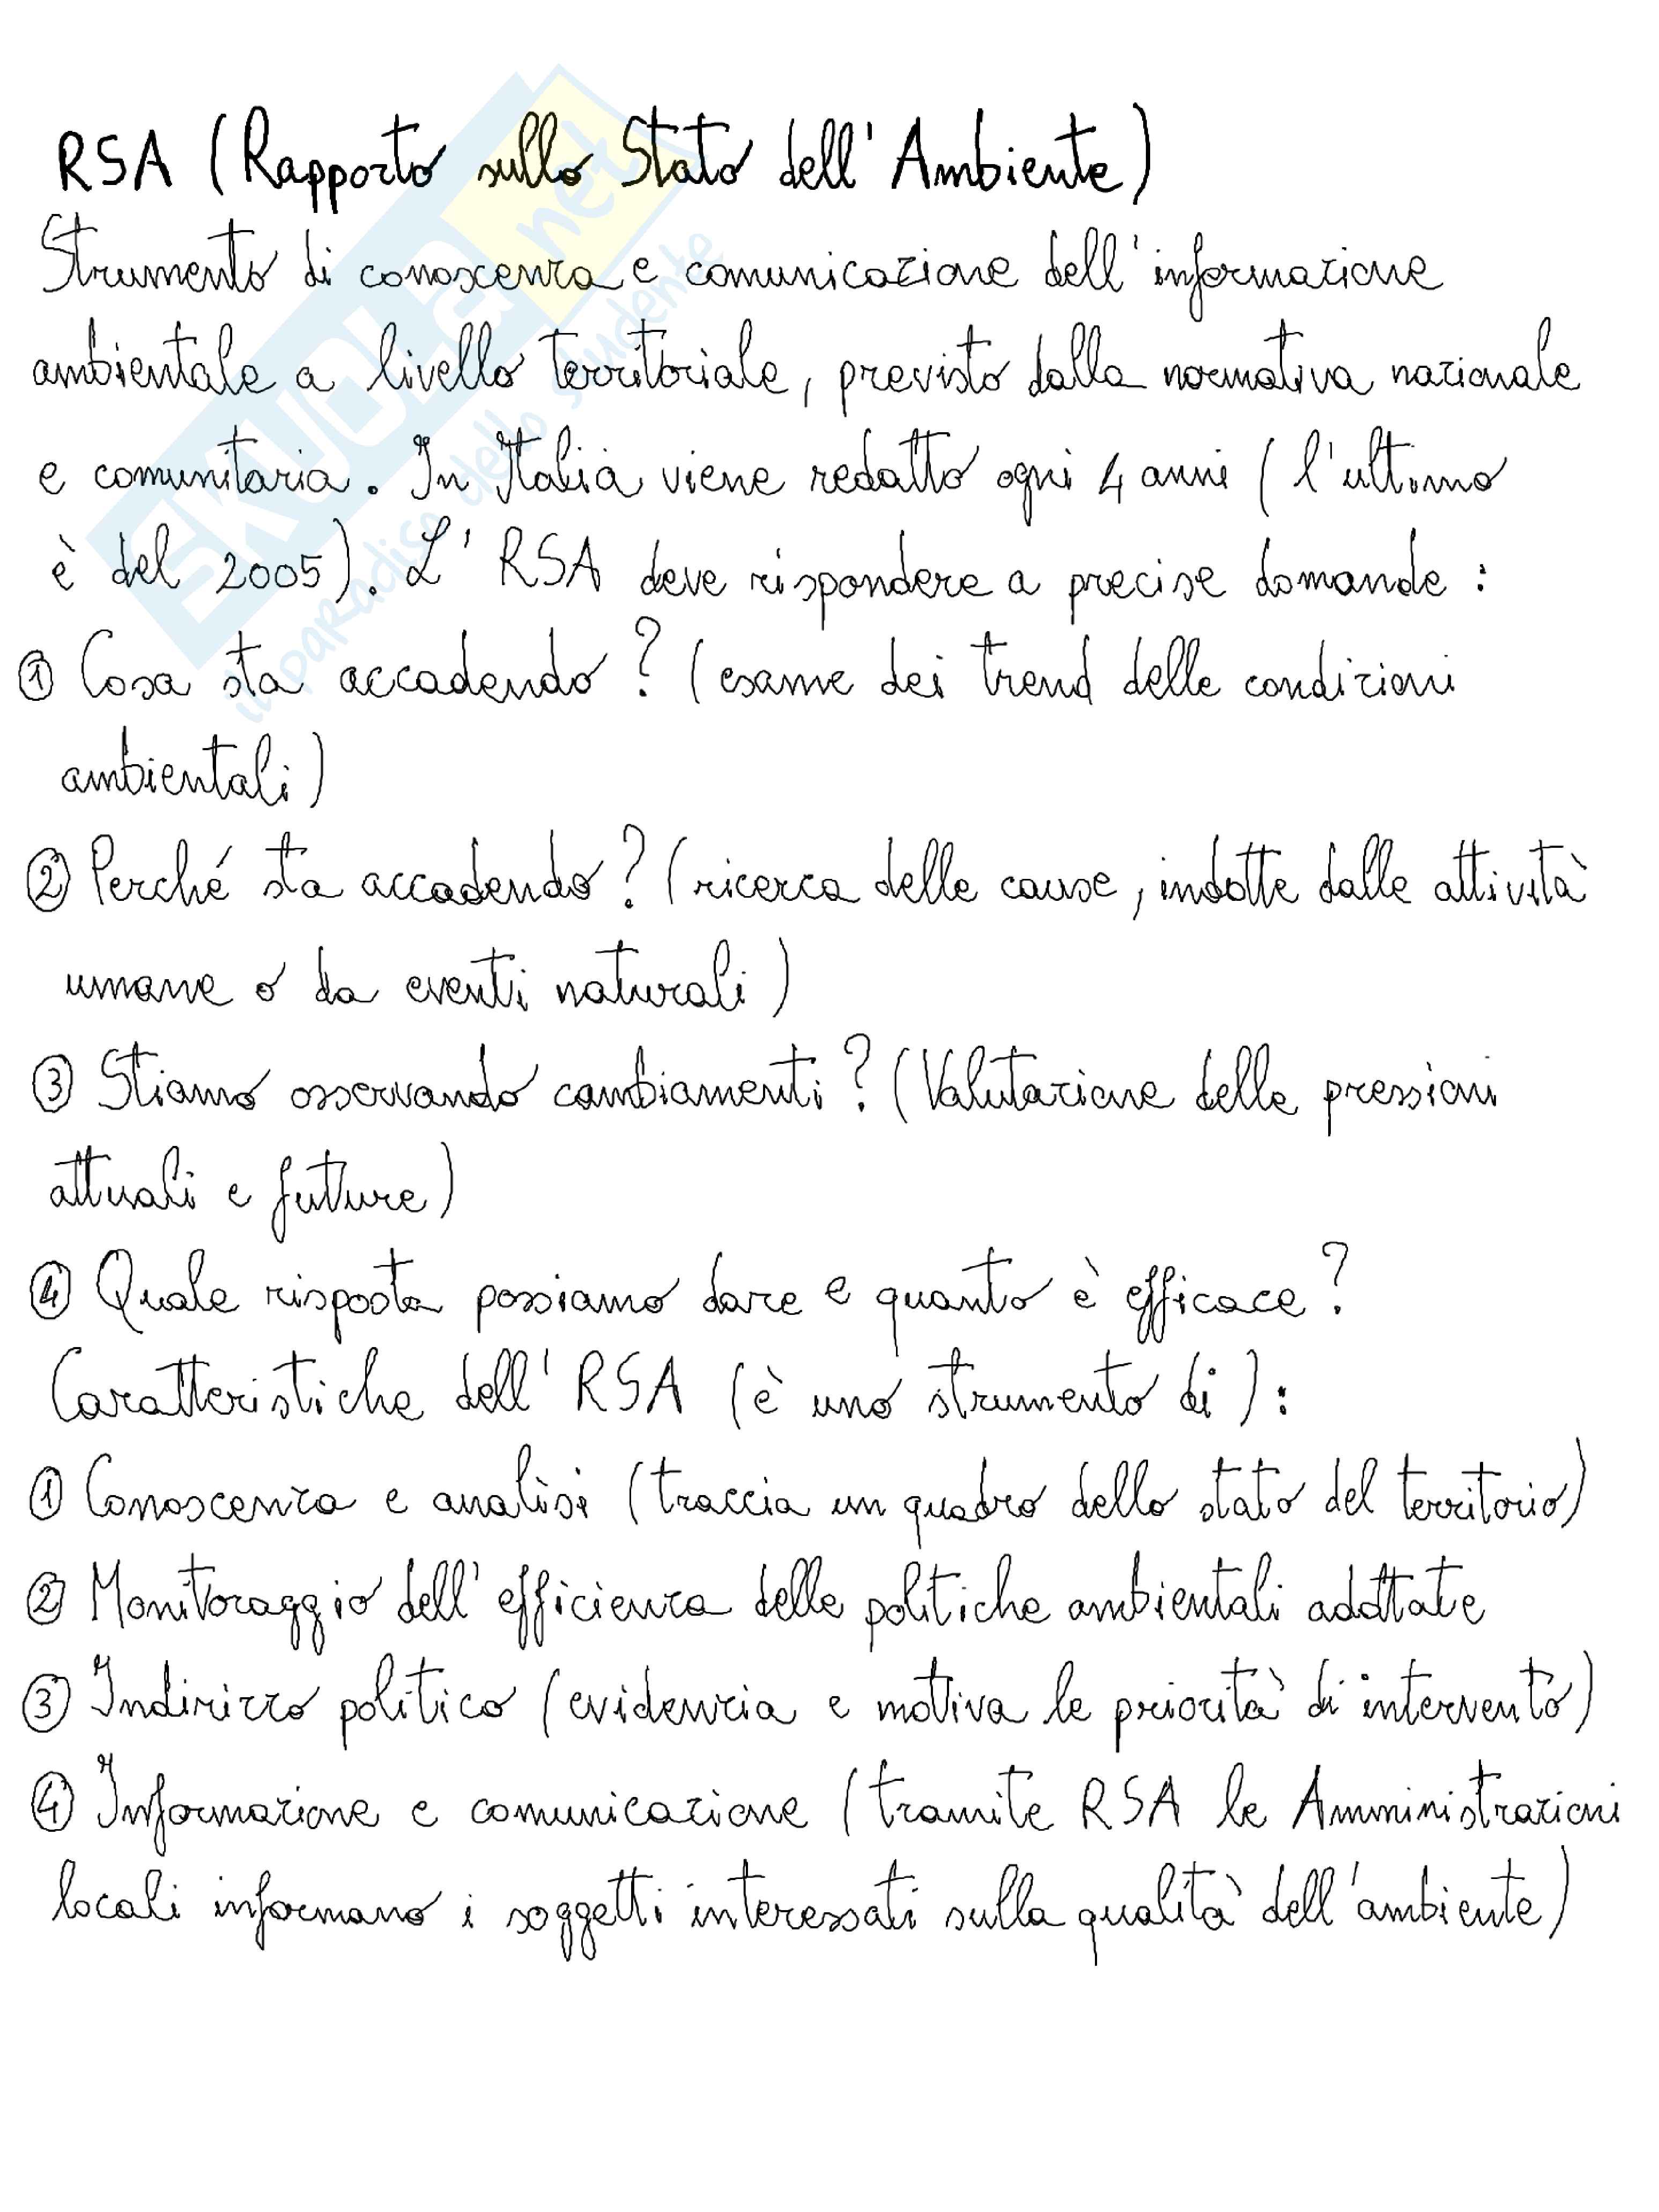 RSA (Rapporto sullo Stato dell'Ambiente)
Strumento di conoscenza e comunicazione dell'informazione
ambientale a livello territoriale, previsto dalla normativa nazionale
e comunitaria. In Italia viene redatto ogni 4 anni (l'ultimo
è del 2005). L' RSA deve rispondere a precise domande :
① Cosa sta accadendo ? (esame dei trend delle condizioni
ambientali)
② Perché sta accadendo ? (ricerca delle cause, indotte dalle attività
umane o da eventi naturali)
③ Stiamo osservando cambiamenti ? (Valutazione delle pressioni
attuali e future)
④ Quale risposta possiamo dare e quanto è efficace ?
Caratteristiche dell' RSA (è uno strumento di) :
① Conoscenza e analisi (traccia un quadro dello stato del territorio)
② Monitoraggio dell' efficienza delle politiche ambientali adottate
③ Indirizzo politico (evidenzia e motiva le priorità di intervento)
④ Informazione e comunicazione (tramite RSA le Amministrazioni
locali informano i soggetti interessati sulla qualità dell'ambiente)
SKUOLA.net
il paradiso dello studente